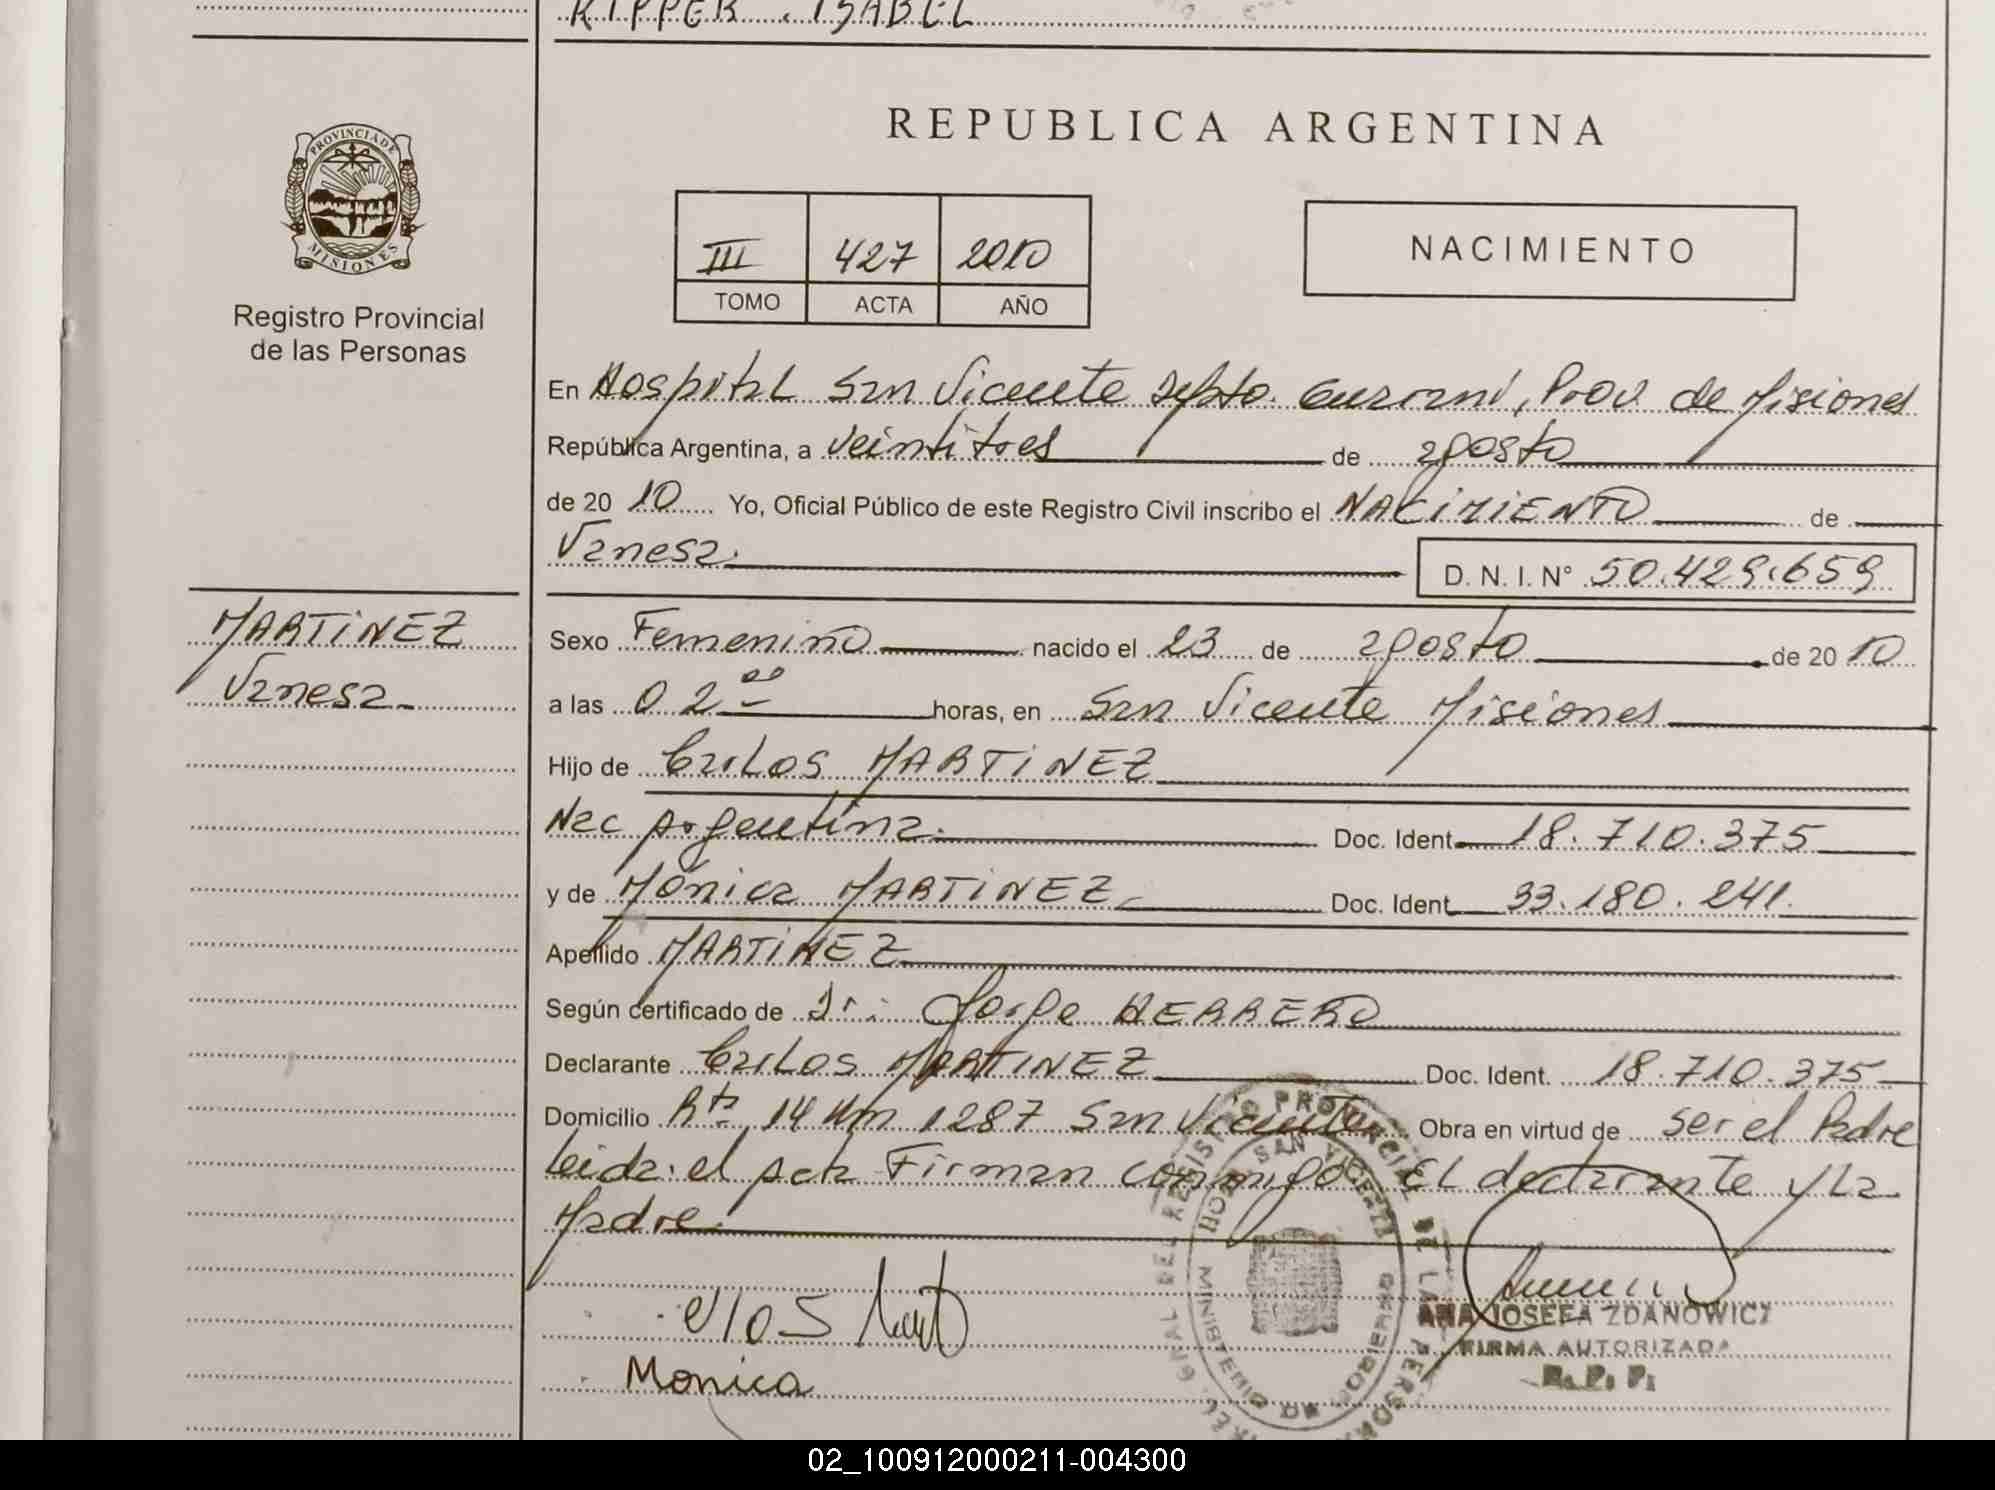 KIPPER . ISABEL
PROVINCIA DE
MISIONES
Registro Provincial
de las Personas
REPUBLICA ARGENTINA
III 427 2010
TOMO ACTA AÑO
NACIMIENTO
En Hospital San Vicente Depto. Guaraní, Prov. de Misiones
República Argentina, a veintitres de agosto
de 2010 Yo, Oficial Público de este Registro Civil inscribo el NACIMIENTO de
Vanesa. D. N. I. N° 50.429.659
MARTINEZ
Vanesa
Sexo Femenino nacido el 23 de agosto de 2010
a las 02 00 horas, en San Vicente Misiones
Hijo de Carlos MARTINEZ
Nac Argentina. Doc. Ident 18.710.375
y de Mónica MARTINEZ Doc. Ident 33.180.241.
Apellido MARTINEZ
Según certificado de Dr: Jorge HERRERO
Declarante Carlos MARTINEZ Doc. Ident. 18.710.375
Domicilio Rta 14 Km 1287 San Vicente Obra en virtud de ser el Padre
Leida el acta Firman conmigo El declarante y La
Madre.
Monica
ANA JOSEFA ZDANOWICZ
FIRMA AUTORIZADA
R. P. P.
02_100912000211-004300